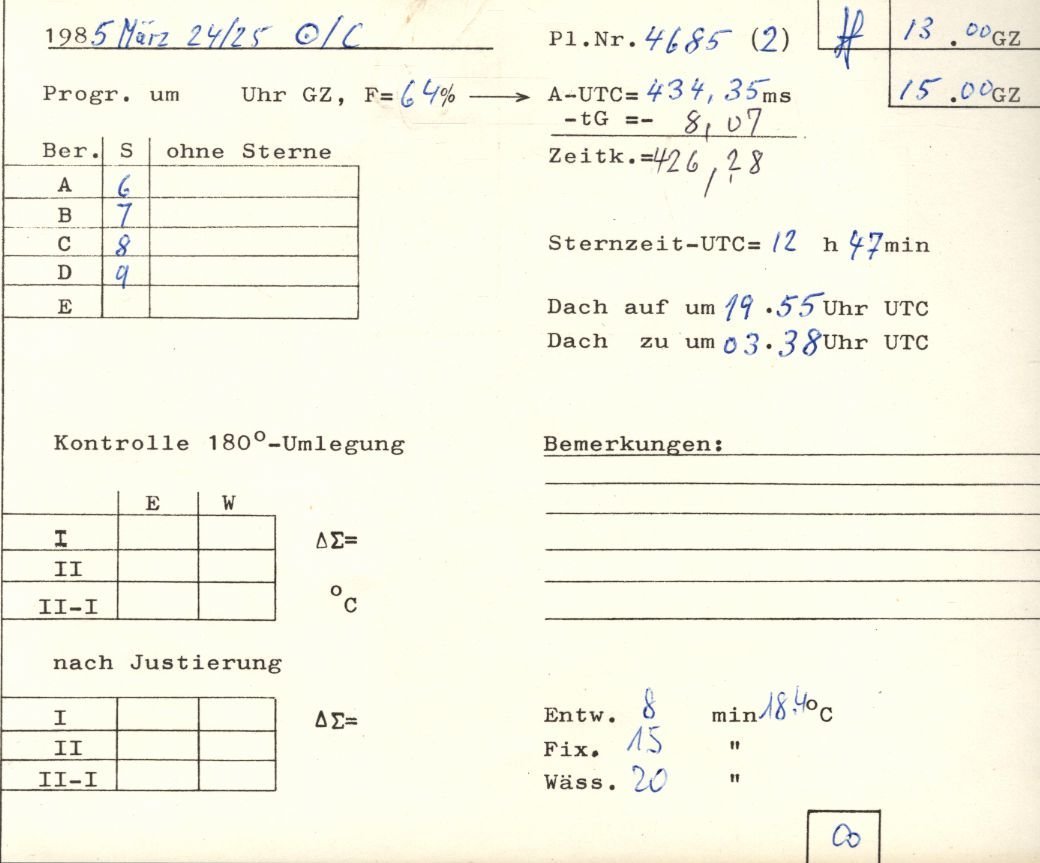 1985 März 24/25 ⊙/C
Pl.Nr. 4685 (2)
13.00 GZ
Progr. um Uhr GZ, F= 64% → A-UTC= 434,35 ms
15.00 GZ
-tG =- 8,07
Zeitk.= 426,28
Ber. S ohne Sterne
A 6
B 7
C 8
D 9
E
Sternzeit-UTC= 12 h 47 min
Dach auf um 19.55 Uhr UTC
Dach zu um 03.38 Uhr UTC
Kontrolle 180°-Umlegung
Bemerkungen:
E W
I ΔΣ=
II
II-I °C
nach Justierung
I ΔΣ=
II
II-I
Entw. 8 min 18,4°C
Fix. 15 "
Wäss. 20 "